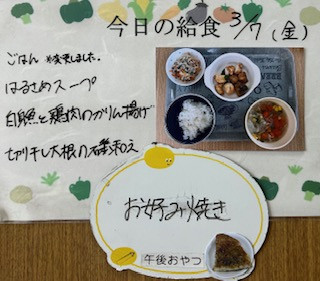 今日の給食 3/7 (金)
ごはん 変更しました。
はるさめスープ
白魚と鶏肉のかりん揚げ
切り干し大根の磯和え
お好み焼き
午後おやつ